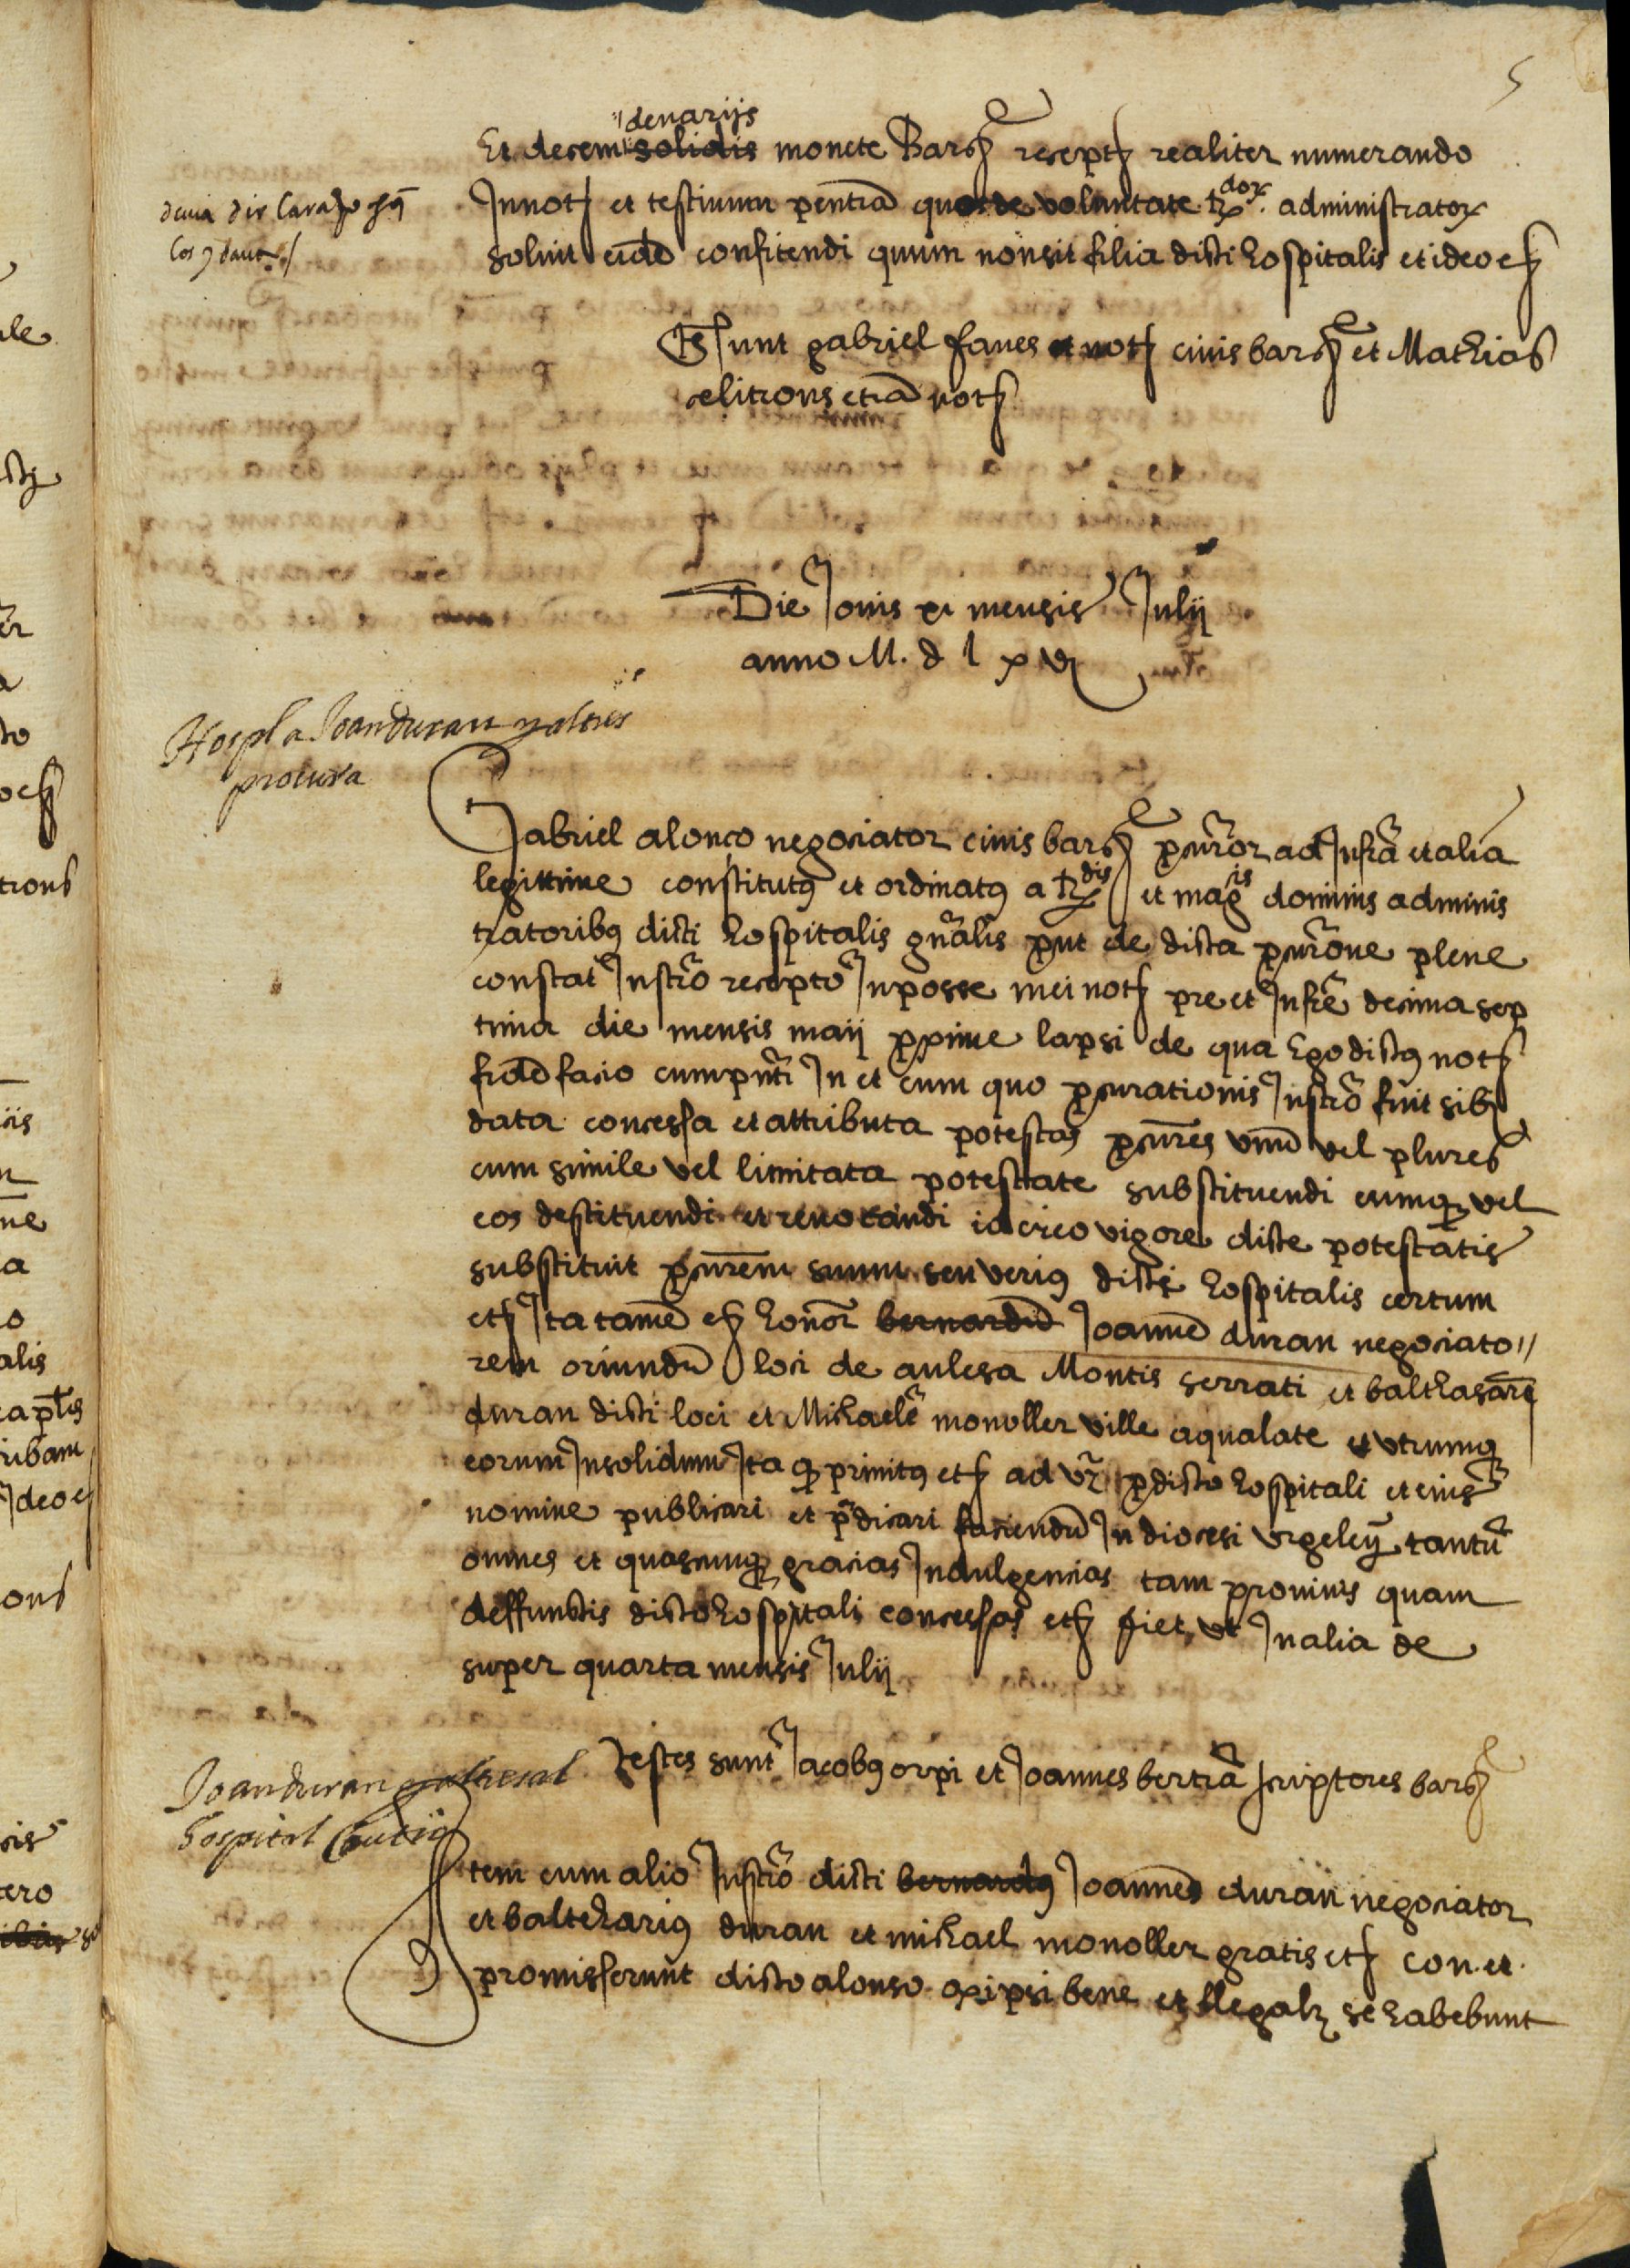 5
denarijs
Et decem solidis monete Barc̃ recept̃ realiter numerando
In not̃ et testium pentiã quos de voluntate Rdor administrator
soluit eidẽ confitendi quum non sit filia dicti hospitalis et ideo etc̃
Tes̃ sunt gabriel fanes et not̃ ciuis barc̃ et Mathias
celitrons etiã not̃
Die Jouis xi mensis Julij
anno M. d l x vj
Hospl a Joan duran y altres
procura
Gabriel alonço negociator ciuis barc̃ pcur̃or ad Infrã et alia
legittime constitutꝰ et ordinatꝰ a Rdis et magis dominis adminis
tratoribꝰ dicti hospitalis gñalis put de dicta pcur̃one plene
constat Instrõ receptõ In posse mei not̃ pre et Infrẽ decima sep
tima die mensis maij pxime lapsi de qua Ego dictꝰ not̃
fidẽ facio cum pñti In et cum quo pcurationis Instrõ fuit sibi
data concessa et attributa potestas pcur̃es vnũ vel plures
cum simile vel limitata potestate substituendi eumq̃ vel
eos destituendi et reuocandi idcirco vigore dicte potestatis
substituit pcur̃em suum seu verius dicti hospitalis certum
etc̃ Ita tamẽ etc̃ honor̃ bernardũ Joannẽ duran negociato//
rem oriundũ loci de aulesa Montis serrati et balthasarẽ
duran dicti loci et Michaelẽ monoller ville aqualate et vtrumq̃
eorum Insolidum Ita q̃ primitꝰ etc̃ ad vr̃ pdicto hospitali et eius
nomine publicari et p̃dicari faciendũ In diocesi vrgelen̄ tantũ
omnes et quascumq̃ gracias Indulgencias tam pro viuis quam
deffunctis dicto hospitali concessas etc̃ fiet vt In alia de
super quarta mensis Julij
Testes sunt Jacobꝰ orpi et Joannes bertrã scriptores barc̃
Joan duran y altres al
hospital Caucio
Item cum alio Instrõ dicti bernardꝰ Joannes duran negociator
et baltezarius duran et michael monoller gratis etc̃ con. et.
promisserunt dicto alonso q̃ ipsi bene et llegalr̃ se habebunt